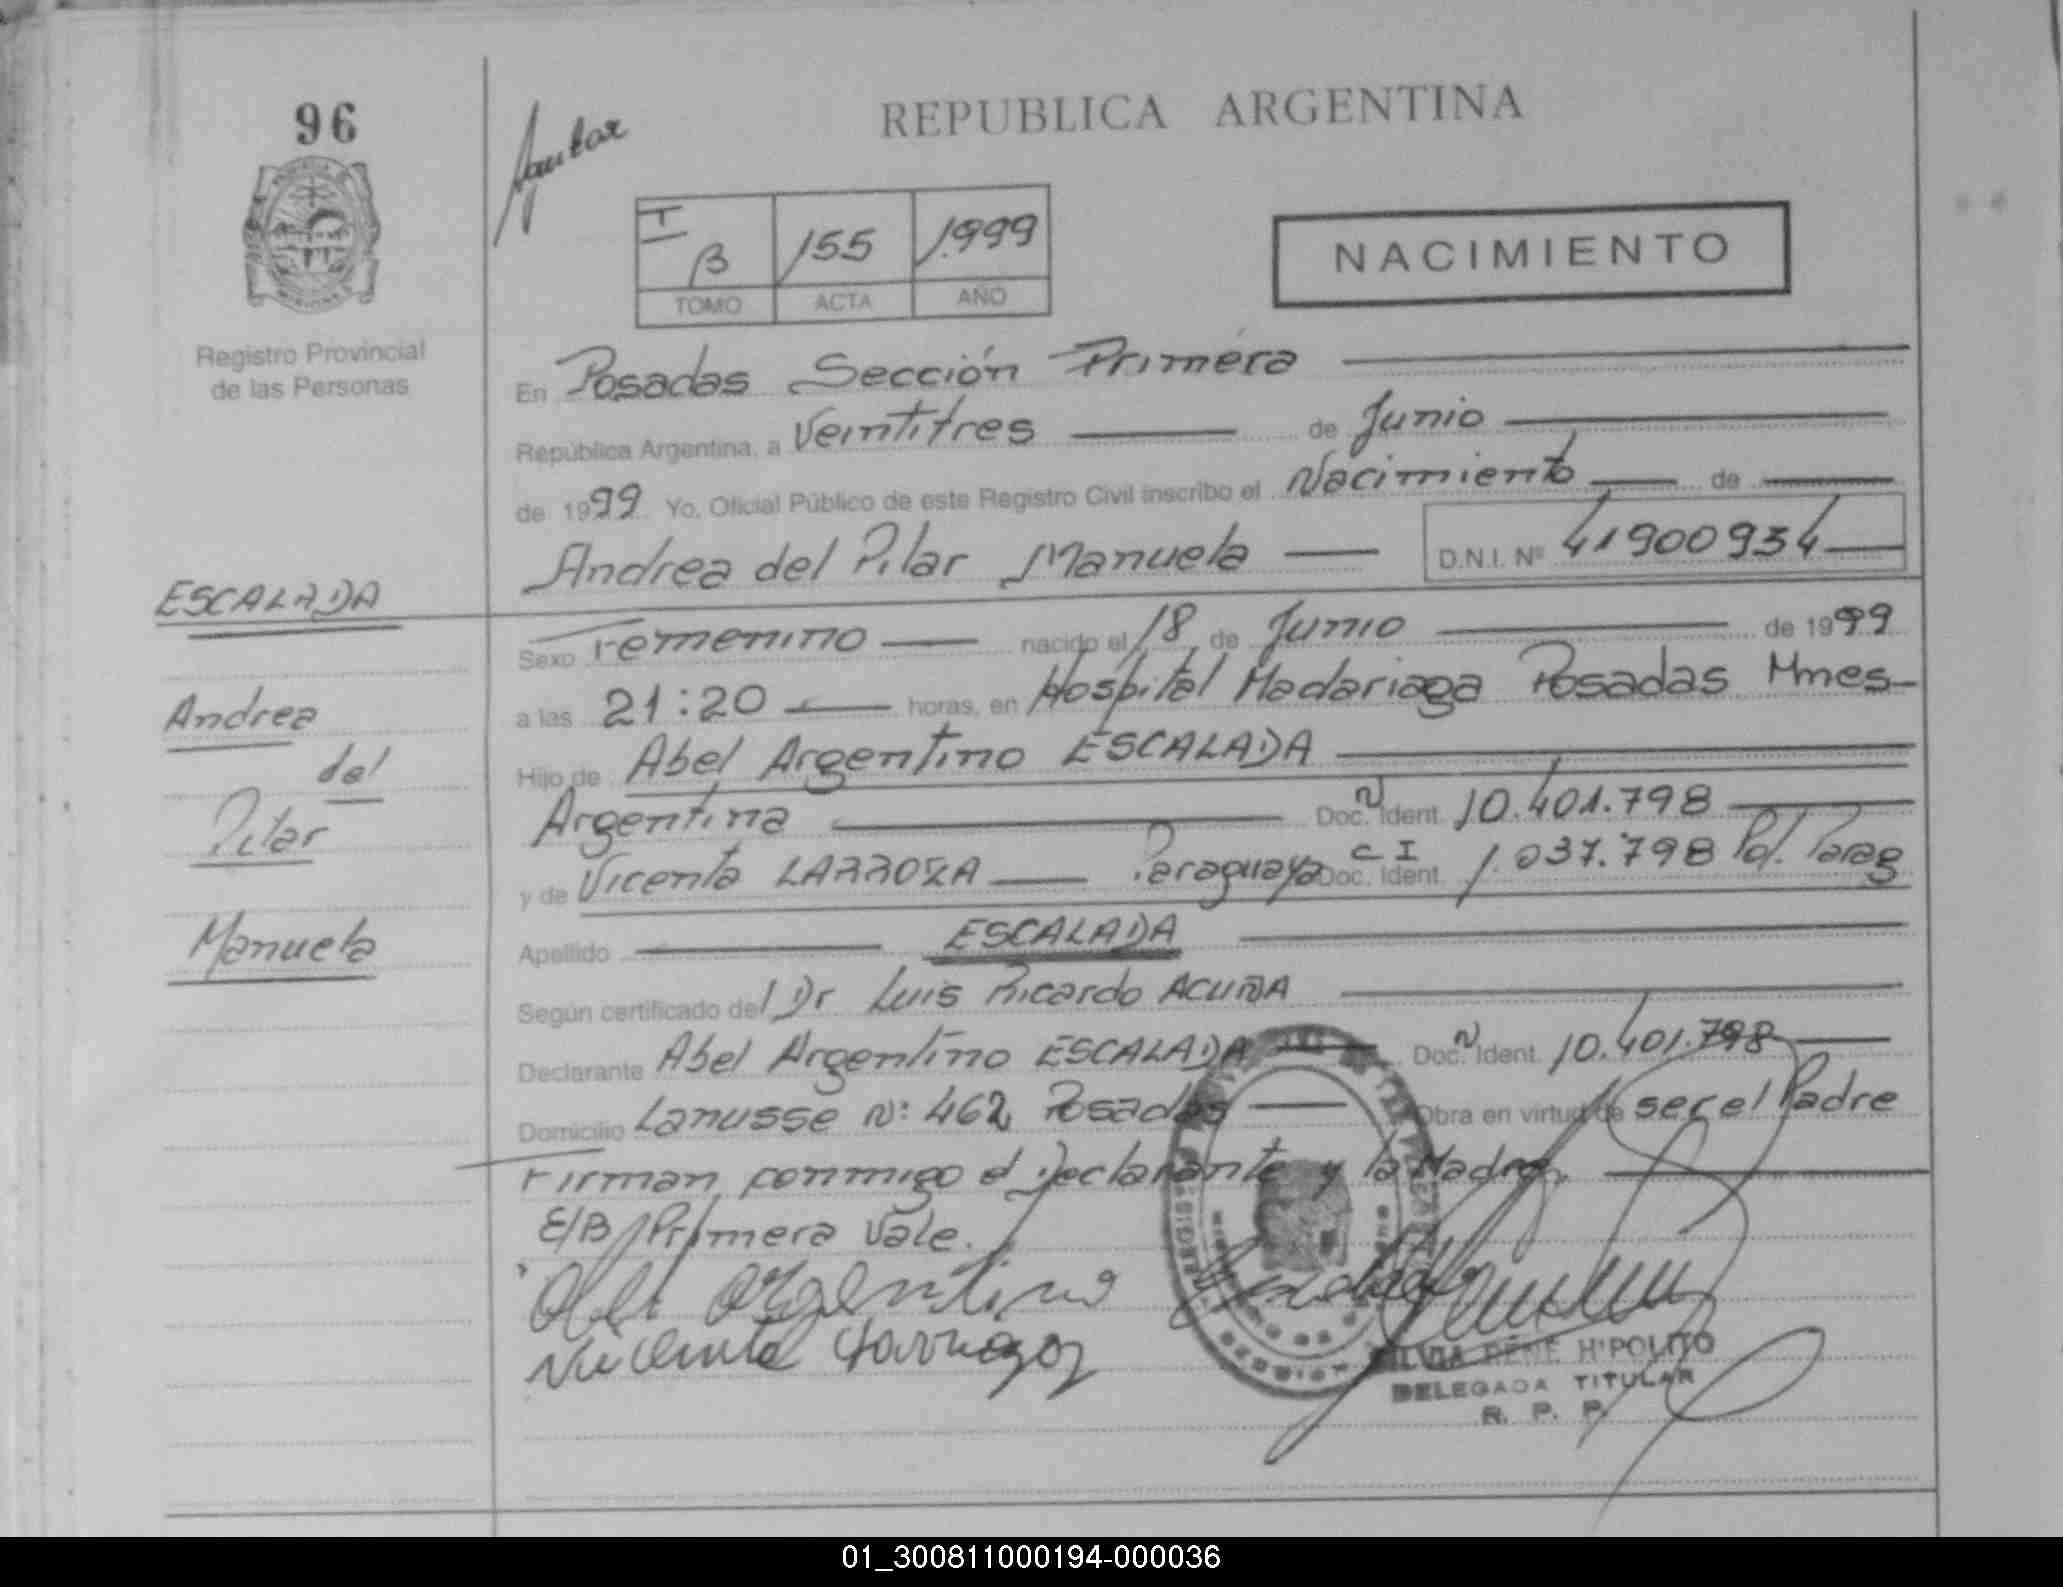 96
REPUBLICA ARGENTINA
II
B 155 1.999
TOMO ACTA AÑO
NACIMIENTO
Registro Provincial
de las Personas
En Posadas Sección Primera
República Argentina, a Veintitres de Junio
de 1999 Yo, Oficial Público de este Registro Civil inscribo el Nacimiento de
Andrea del Pilar Manuela D.N.I. Nº 41900934
ESCALADA
Andrea
del
Pilar
Manuela
Sexo Femenino nacido el 18 de Junio de 1999
a las 21:20 horas, en Hospital Madariaga Posadas Mnes
Hijo de Abel Argentino ESCALADA
Argentina Doc. N Ident. 10.401.798
y de Vicenta LARROZA Paraguaya C I Doc. Ident. 1.037.798 Pol. Parag
Apellido ESCALADA
Según certificado del Dr Luis Ricardo ACUÑA
Declarante Abel Argentino ESCALADA Doc. N Ident. 10.401.798
Domicilio Lanusse Nº 462 Posadas Obra en virtud de ser el Padre
Firman conmigo el Declarante y la Madre.
E/B Primera Vale.
Abel Argentino Escalada
Vicenta Larroza
SILVIA RENE HIPOLITO
DELEGADA TITULAR
R. P. P.
01_300811000194-000036